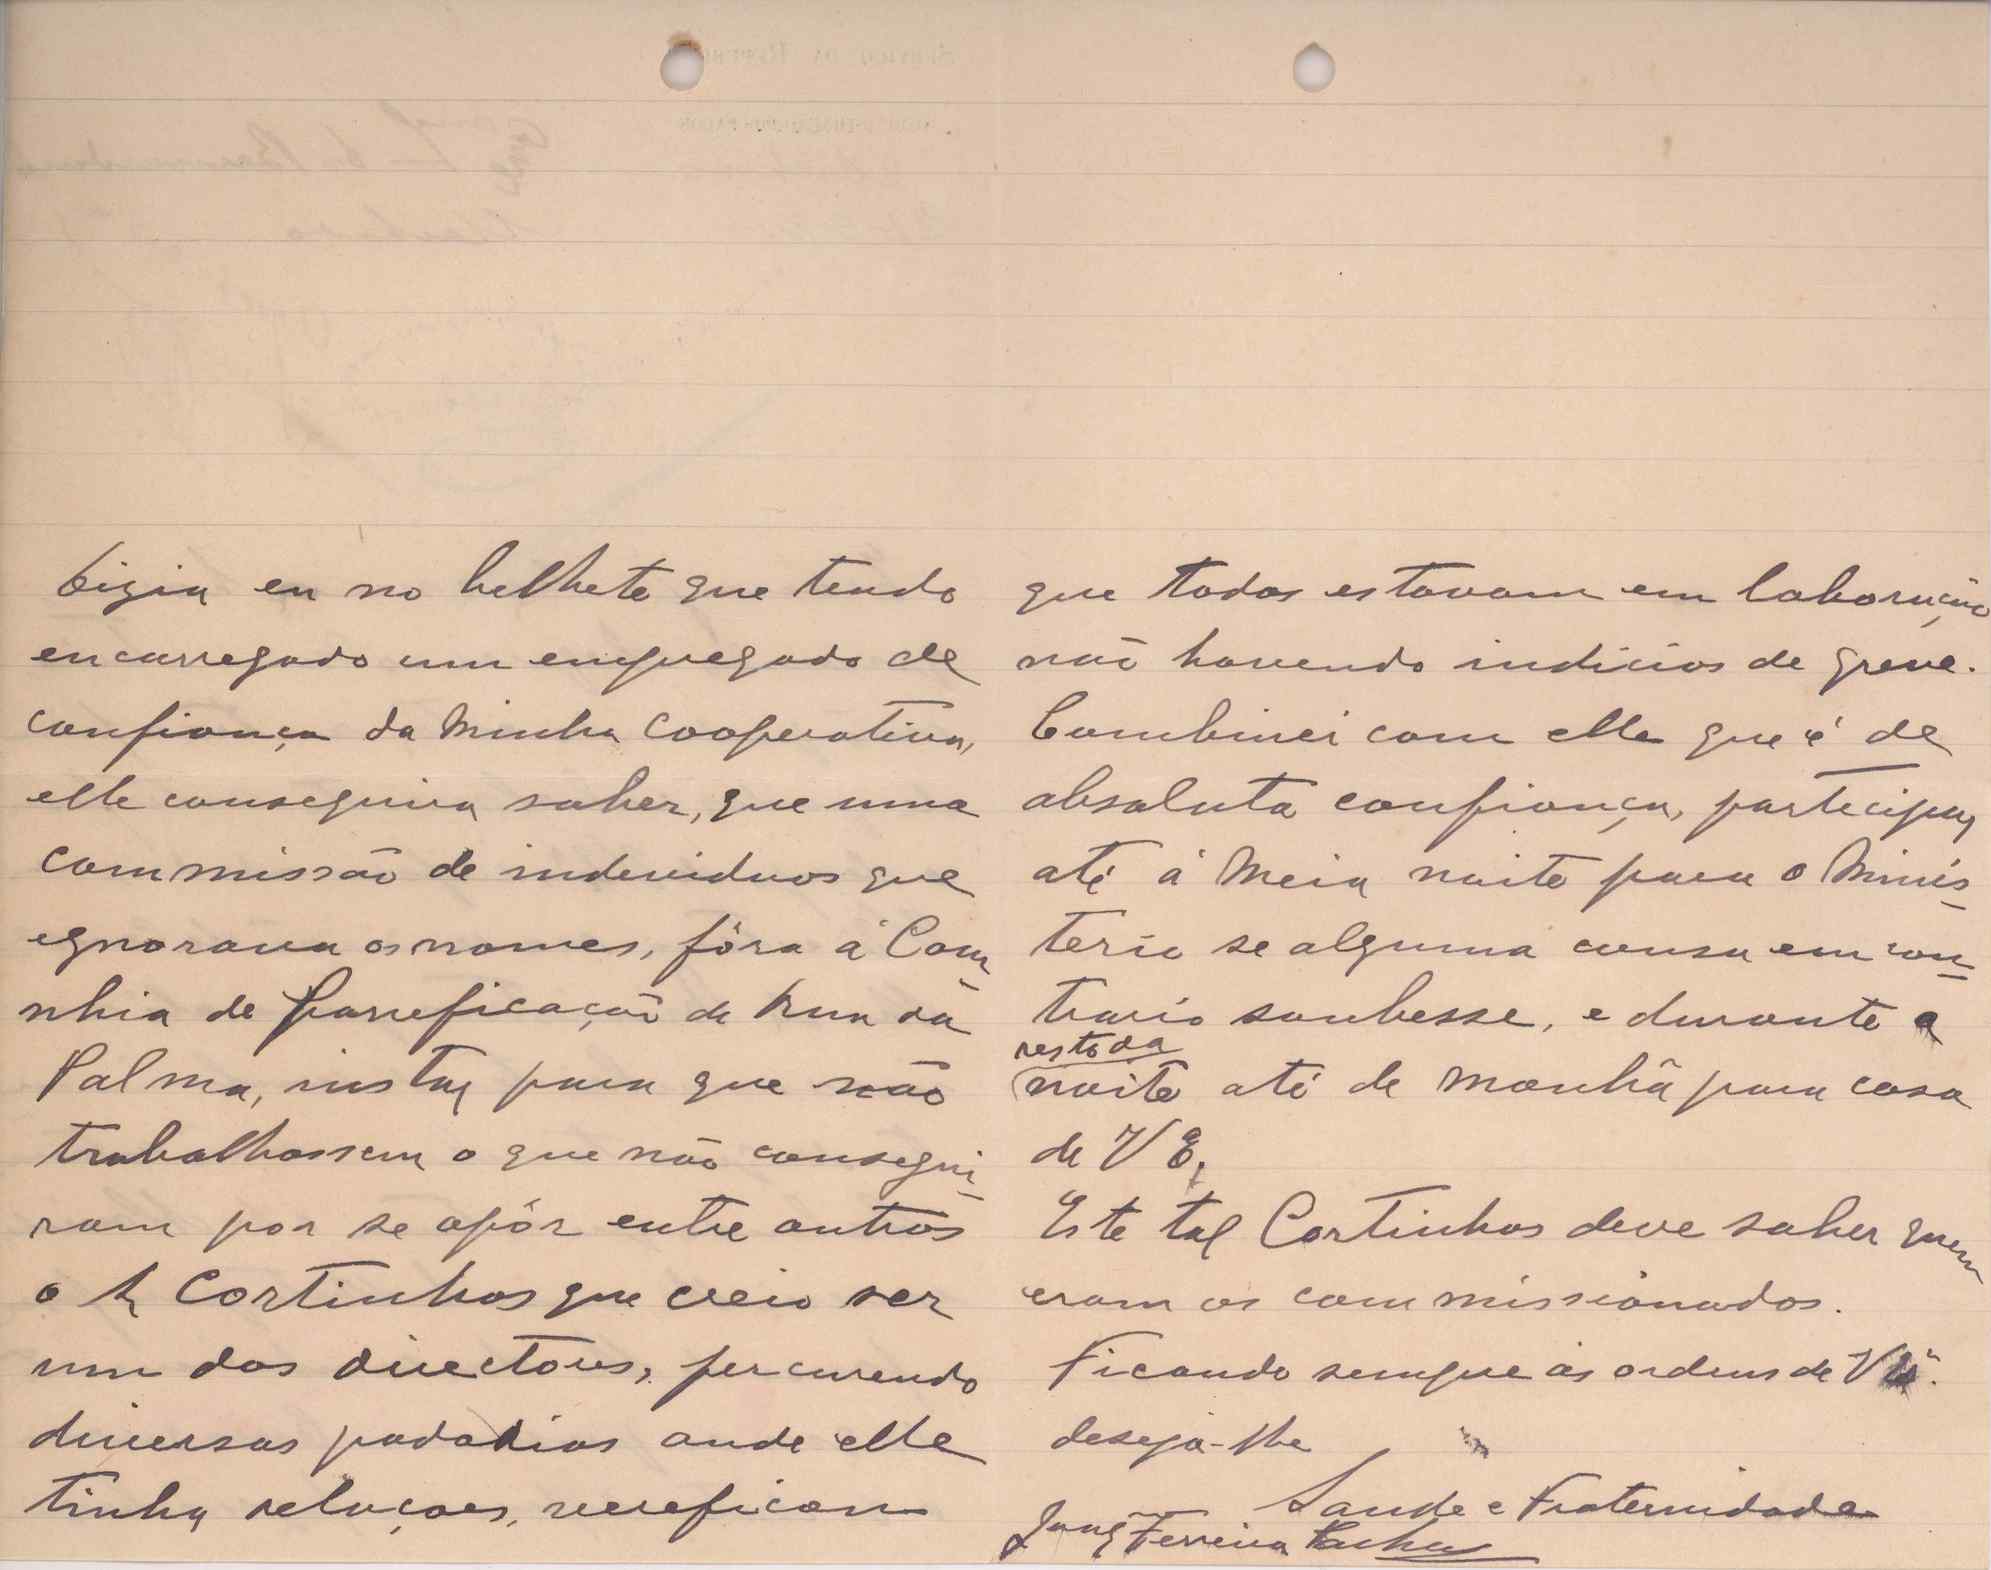 Dizia eu no belhete que tendo
encarregado um empregado de
confiança da minha cooperativa,
elle conseguira saber, que uma
commissão de indeviduos que
egnorava os nomes, fôra á Com
nhia de Paneficação da Rua da
Palma, instar para que não
trabalhassem o que não consegui-
ram por se opôr entre outros
o Sr Cortinhas que creio ser
um dos directores, percurendo
diversas padarias onde elle
tinha relaçoes, vereficou
que todas estavam em laboração
não havendo indicios de greve.
Combinei com elle que é de
absoluta confiança, partecipar
até á meia noite para o Minis-
terio se alguma cousa em con-
trario soubesse, e durante o
resto da
noite até de manhã para casa
de V E.
Este tal Cortinhas deve saber quem
eram os commissionados.
Ficando sempre ás ordens de V Eª.
deseja-lhe
Saude e Fraternidade
Ferreira